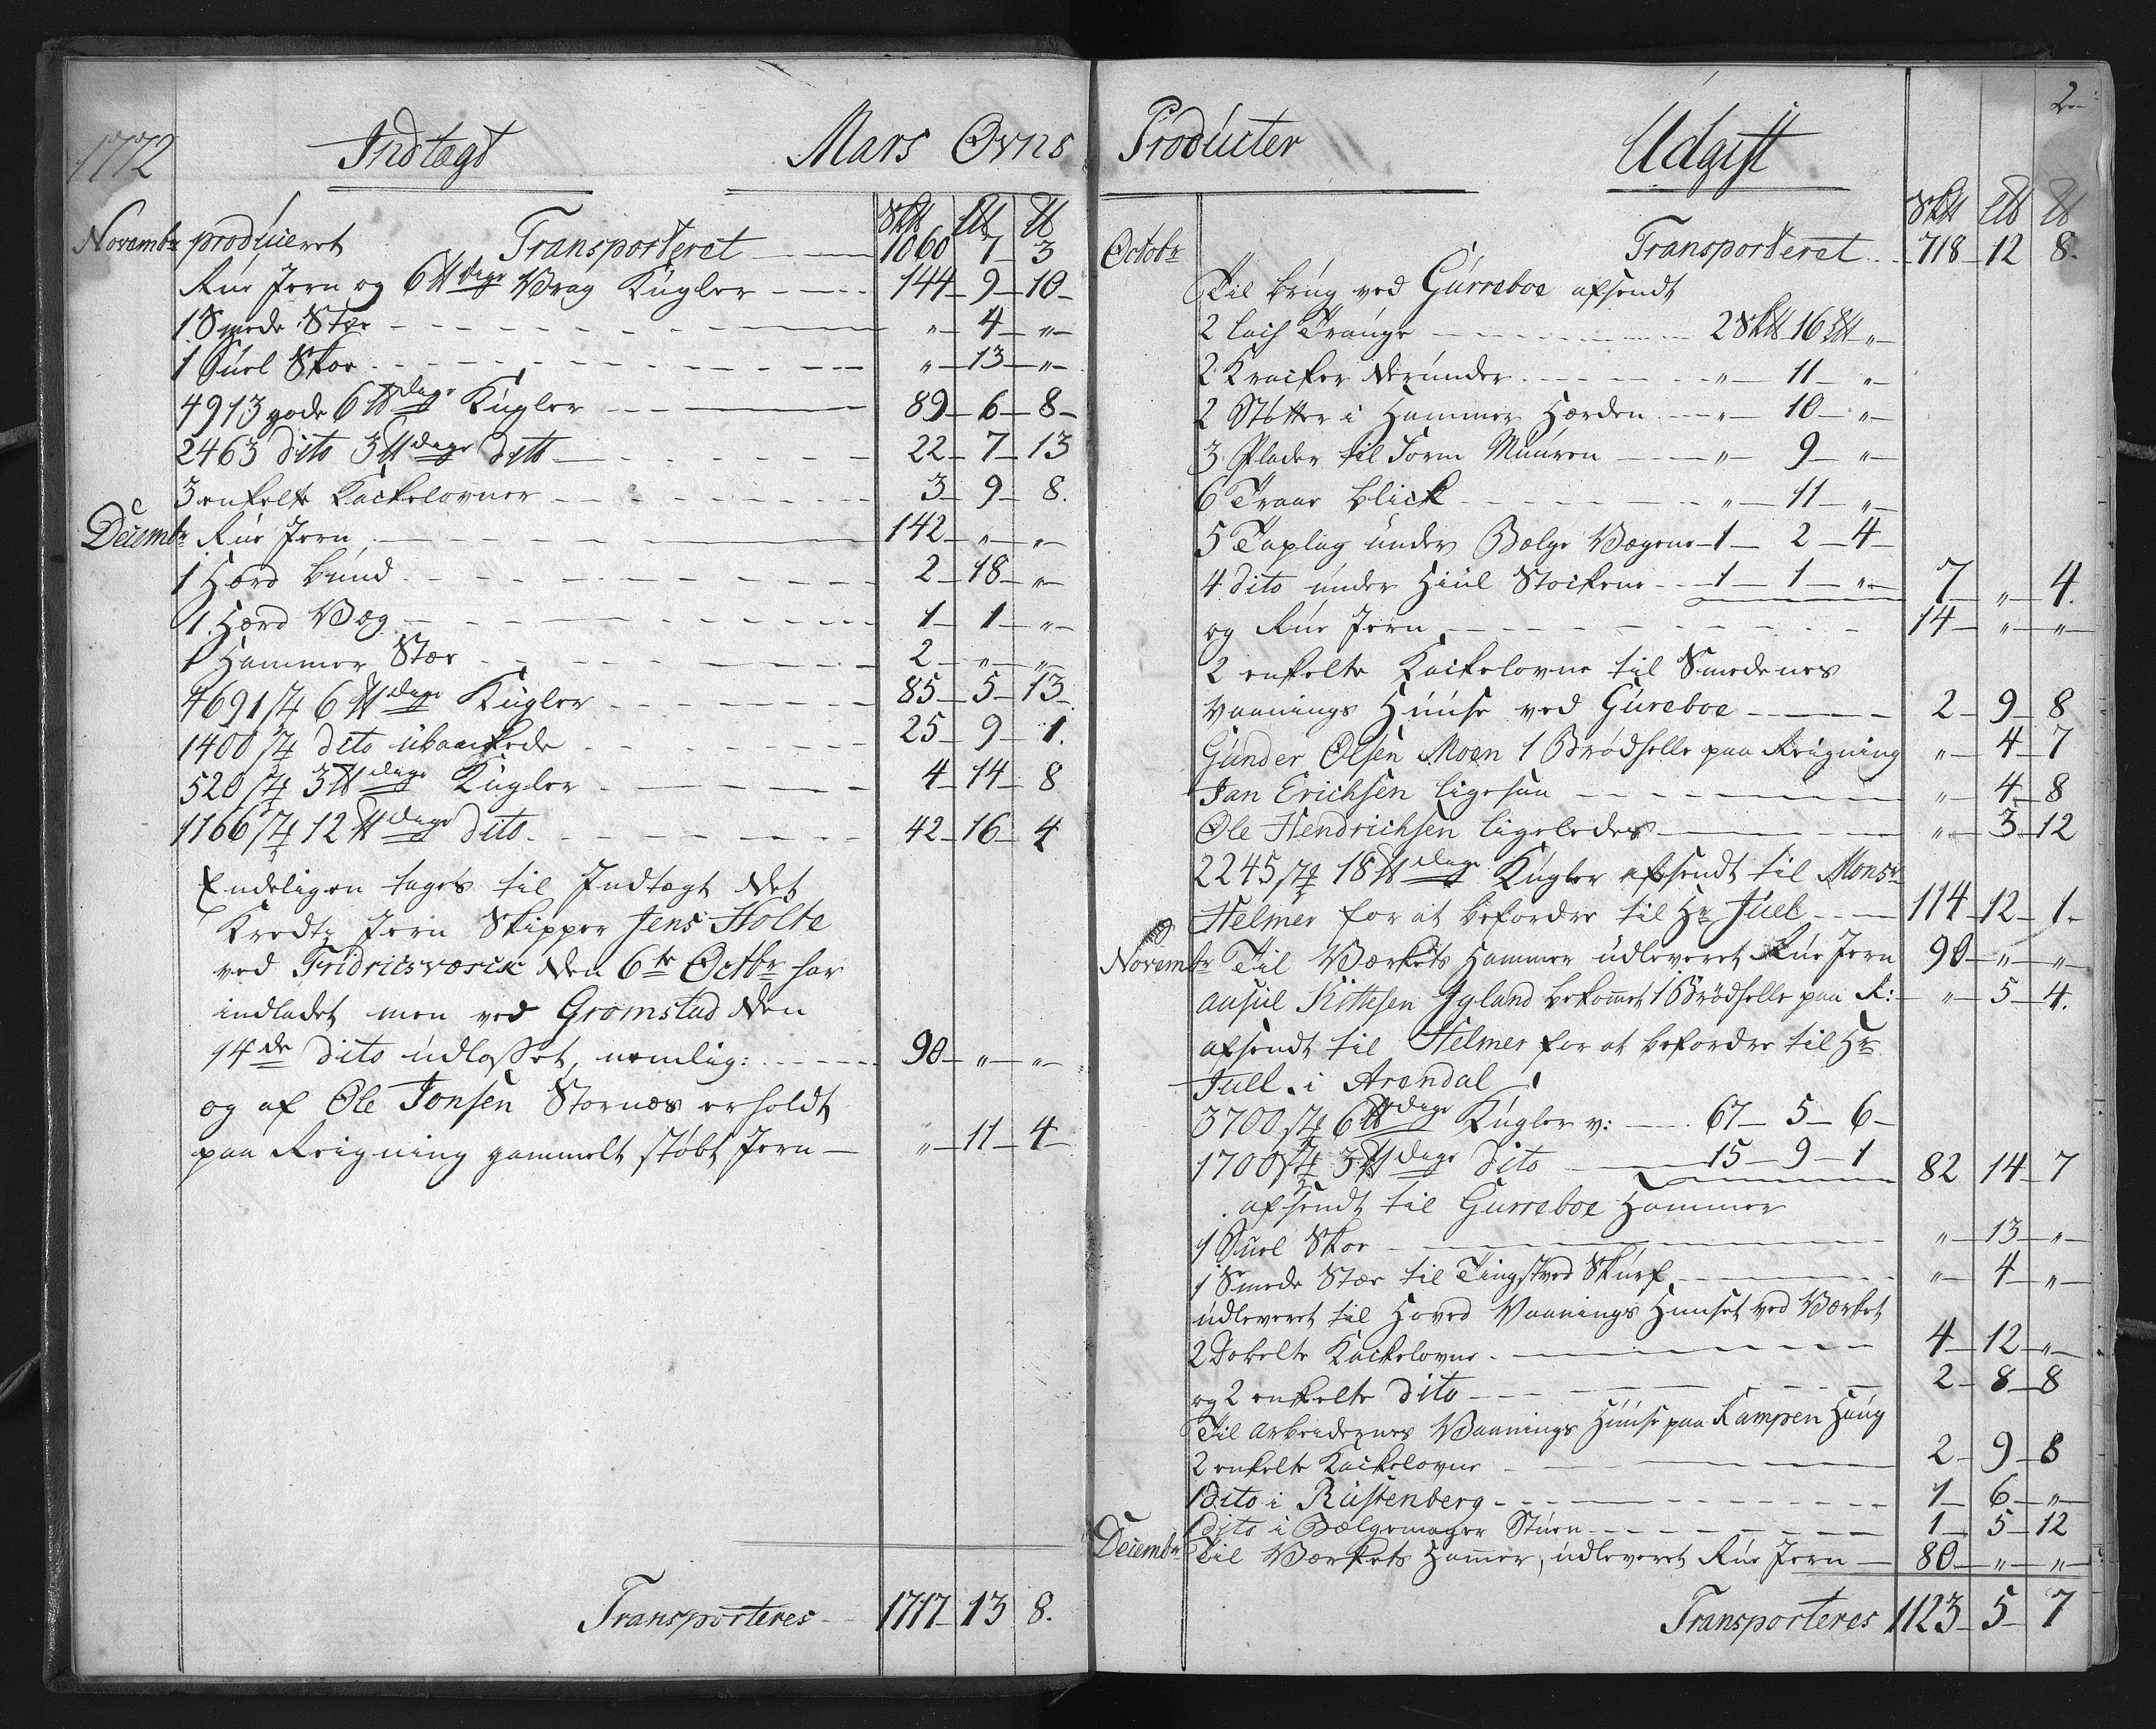 1772 Indtægt Mars Ovns
Sk℔ L℔ ℔
Novembr produceret Transporteret 1060 7 3
Rue Jern og 6 ℔dige Vrag Kugler 144 9 10
1 Smede Stæe " 4 "
1 Suel Skoe " 13 "
4913 gode 6 ℔dige Kugler 89 6 8
2463 dito 3 ℔dige ditto 22 7 13
3 enkelte Kackelovner 3 9 8.
Decembr Rue Jern 142 " "
1 Hærd bund 2 18 "
1 Hærd Væg 1 1 "
1 Hammer Stæe 2 " "
4691 st 6 ℔dige Kugler 85 5 13
1400 st dito ubankede 25 9 1.
520 st 3 ℔dige Kugler 4 14 8
1166 st 12 ℔dige dito 42 16 4
Endeligen tages til Indtægt det
Jern Skipper Jens Holte
ved Fridricsværck den 6te Octbr har
indladet men ved Gromstad den
14de dito udlosset, nemlig: 90 " "
og af Ole Jonsen Stornæs erholdt
paa Reigning gammelt støbt Jern " 11 4
Transporteres 1717 13 8.
2
Producter Udgift
Sk℔ L℔ ℔
Octobr " Transporteret 718 12 8.
Til brug ved Gurreboe afsendt
2 Trange 2 Sk℔ 16 L℔ "
2 Kracker derunder " 11 "
2 Støtter i Hammer Hærden " 10 "
3 Plader til Form Muuren " 9 "
6 Traae blick " 11 "
5 Taplag under Bælge Vægene 1 2 4
4 dito under Hiul Stockene 1 1 " 7 " 4.
og Rue Jern 14 " "
2 enkelte Kackelovne til Smedenes
Vaanings Huuse ved Gureboe 2 9 8
Gunder Olsen Moen 1 Brødhelle paa Reigning " 4 7
Jan Erichsen ligesaa " 4 8
Ole Hendrichsen ligeledes " 3 12
2245 st 18 ℔dige Kugler afsendt til Monsr
Helmer for at befordre til Hr Juel 114 12 1.
Novembr Til Værkets Hammer udleveret Rue Jern 90 " "
Ausul Kittilsen Igland bekomet 1 Brødhelle paa R: " 5 4.
afsendt til Helmer for at befordre til Hr
Juel i Arendal
3700 st 6 ℔dige Kugler v: 67 5 6
1700 st 3 ℔dige dito 15 9 1 82 14 7
afsendt til Gurreboe Hammer
1 Suel Skoe " 13 "
1 Smede Stæe til Tingstved Skurf " 4 "
udleveret til Hoved Vaanings Huuset ved Værket
2 Dobelte Kackelovne 4 12 "
og 2 enkelte dito 2 8 8
Til arbeidernes Vaanings Huuse paa Kampen Haug
2 enkelte Kackelovne 2 9 8
1 dito i Rustenberg 1 6 "
1 dito i Bælgemager Stuen 1 5 12
Decembr Til Værkets Hamer, udleveret Rue Jern 80 " "
Transporteres 1123 5 7